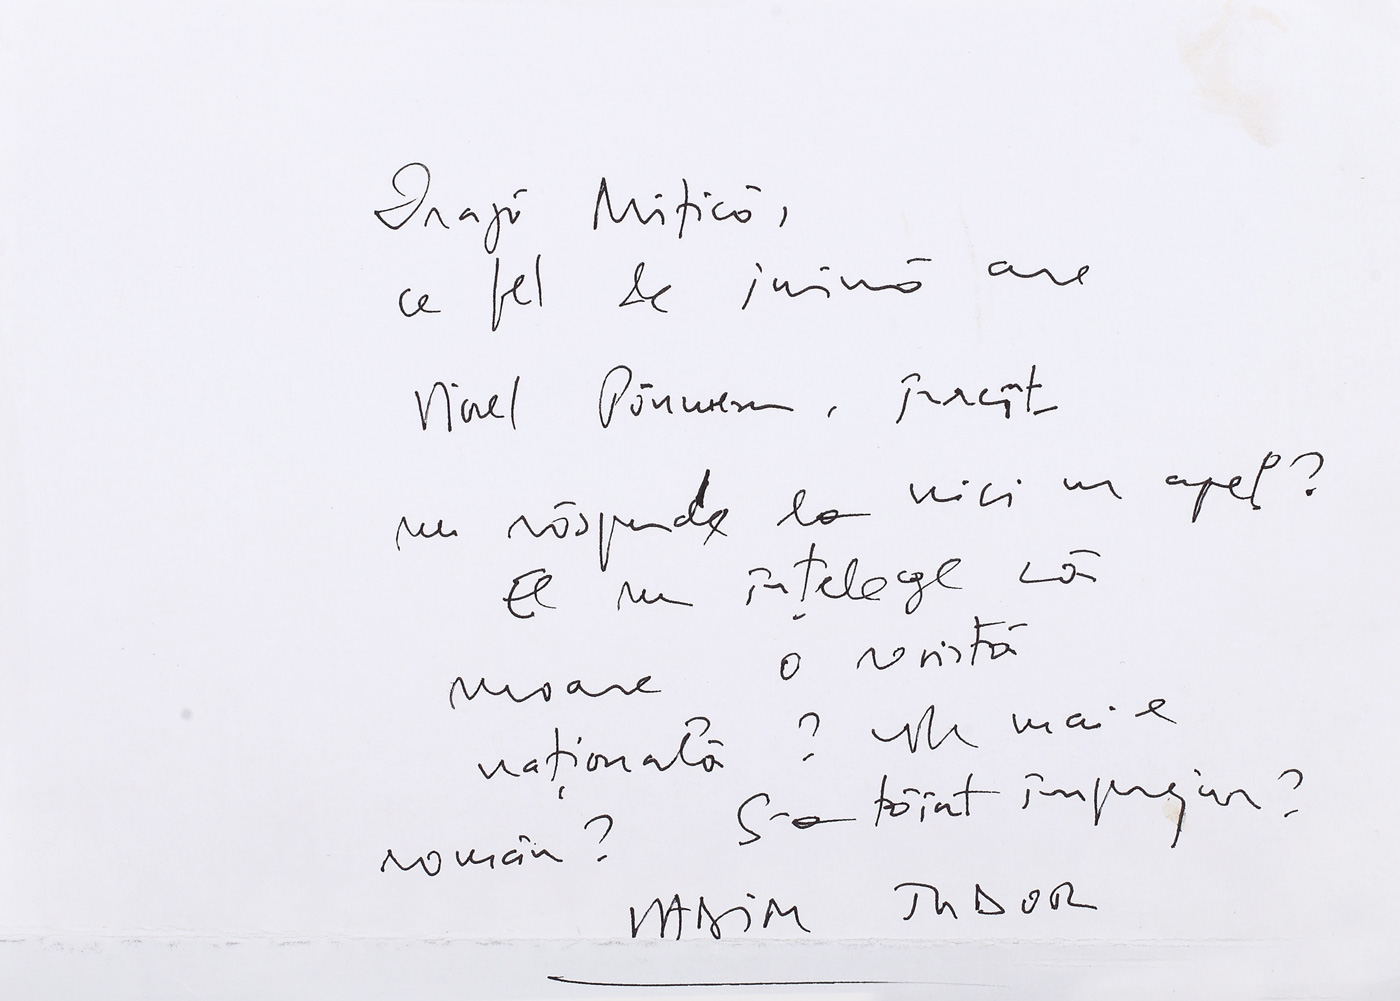 Dragă Mitică,
ce fel de inimă are
Viorel Păunescu, încât
nu răspunde la nici un apel?
El nu înțelege că
moare o revistă
națională? Nu mai e
român? S-a tăiat împrejur?
VADIM TUDOR